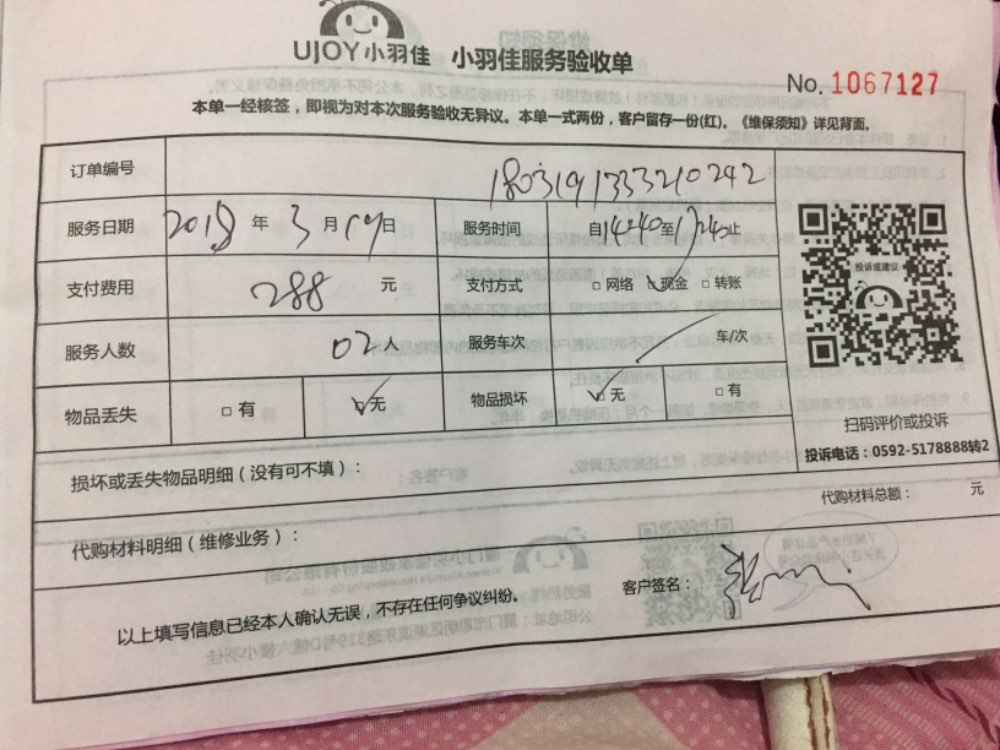 UJOY小羽佳 小羽佳服务验收单
No. 1067127
本单一经核签，即视为对本次服务验收无异议。本单一式两份，客户留存一份(红)。《维保须知》详见背面。
订单编号 1803191333210242
服务日期 2018 年 3 月 19 日 服务时间 自14:40至17:40止
支付费用 288 元 支付方式 □ 网络 ☑ 现金 □ 转账
投诉或建议
服务人数 02 人 服务车次 车/次
物品丢失 □ 有 ☑ 无 物品损坏 ☑ 无 □ 有
扫码评价或投诉
投诉电话：0592-5178888转2
损坏或丢失物品明细（没有可不填）：
代购材料总额： 元
代购材料明细（维修业务）：
客户签名：
以上填写信息已经本人确认无误，不存在任何争议纠纷。